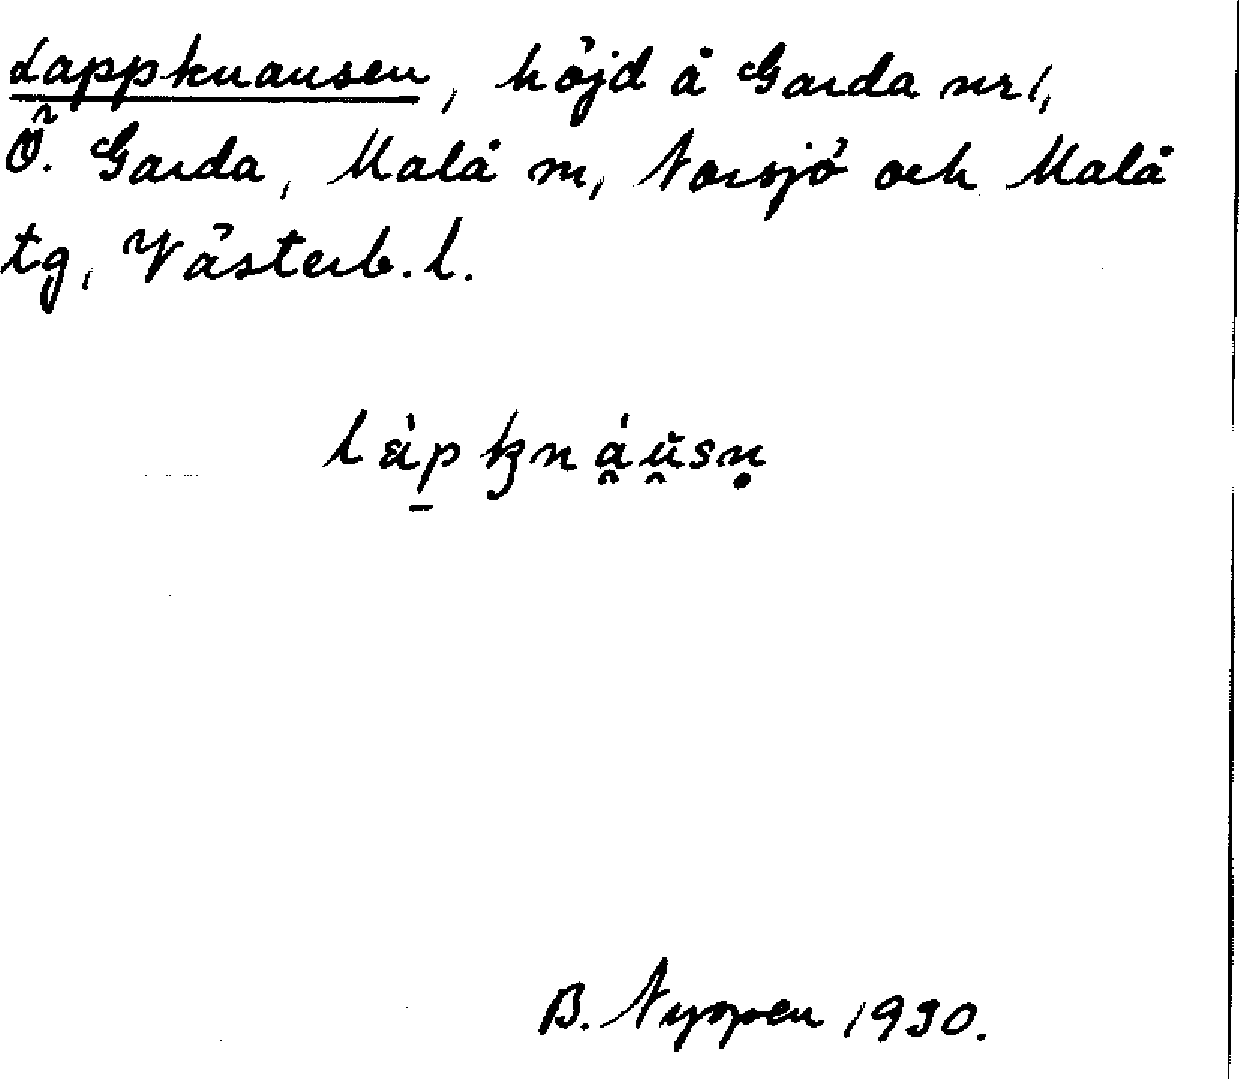 Lappknausen, höjd å Garda nr 1,
Ö. Garda, Malå m, Norsjö och Malå
tg, Västerb. l.
làpknáu̯sn̥
B. Nyspen 1930.